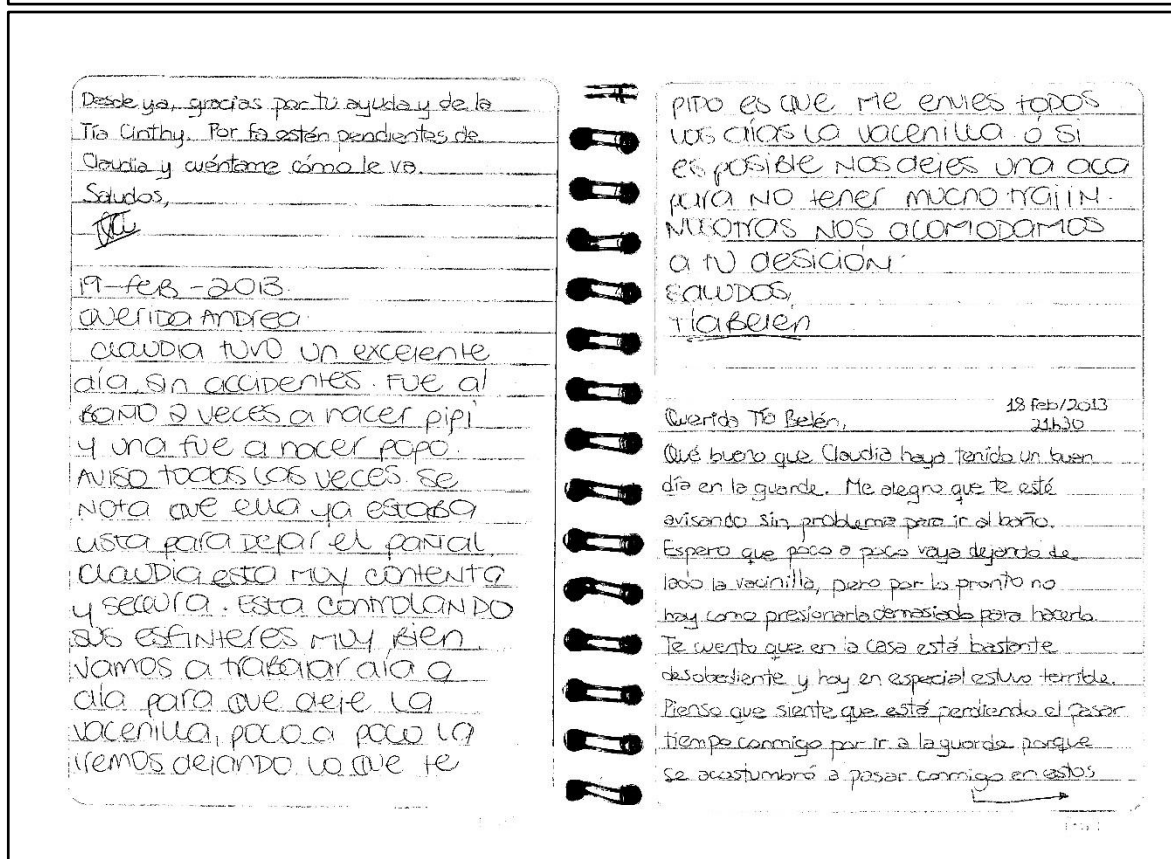 Desde ya, gracias por tu ayuda y de la
Tía Cinthy. Por fa estén pendientes de
Claudia y cuéntame cómo le va.
Saludos,
19-feb-2013.
Querida Andrea.
Claudia tuvo un excelente
día, sin accidentes. Fue al
baño 2 veces a hacer pipí
y una fue a hacer popo.
Aviso todas las veces se
nota que ella ya estaba
lista para dejar el pañal.
Claudia esta muy contenta
y segura. Esta controlando
sus esfínteres muy bien.
Vamos a trabajar día a
día para que deje la
vacenilla, poco a poco la
iremos dejando. Lo que te
pido es que me envies todos
los días la vacenilla ó si
es posible nos dejes una aca
para no tener mucho trajin.
Nosotras nos acomodamos
a tu desición.
Saludos,
Tía Belén
18 feb/2013
Querida Tía Belén,
21h30
Qué bueno que Claudia haya tenido un buen
día en la guarde. Me alegro que te esté
avisando sin problema para ir al baño.
Espero que poco a poco vaya dejando de
lado la vacinilla, pero por lo pronto no
hay como presionarla demasiado para hacerlo.
Te cuento que en la casa está bastante
desobediente y hoy en especial estuvo terrible.
Pienso que siente que está perdiendo el pasar
tiempo conmigo por ir a la guarde porque
se acostumbró a pasar conmigo en estos